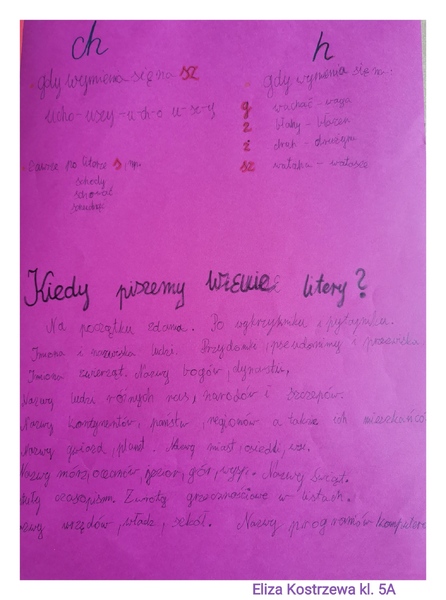 ch
h
gdy wymienia się na sz
gdy wymienia się na:
ucho - uszy - u-ch-o u-sz-y
g
z
ż
sz
błahy - błazen
druh - drużyna
zawsze po literze s, np.
schody
schować
Kiedy piszemy wielkie litery?
Na początku zdania. Po wykrzykniku i pytajniku.
Imiona i nazwiska ludzi. Przydomki, pseudonimy i przezwiska
Imiona zwierząt. Nazwy bogów, dynastii,
Nazwy ludzi różnych ras, narodów i szczepów.
Nazwy kontynentów, państw, regionów a także ich mieszkańcó
Nazwy gwiazd, planet. Nazwy miast, osiedli, wsi.
Nazwy mórz, oceanów, jezior, gór, wysp. Nazwy świąt.
czasopism. Zwroty grzecznościowe w listach.
urzędów, władz, szkół. Nazwy programów komputer
Eliza Kostrzewa kl. 5A